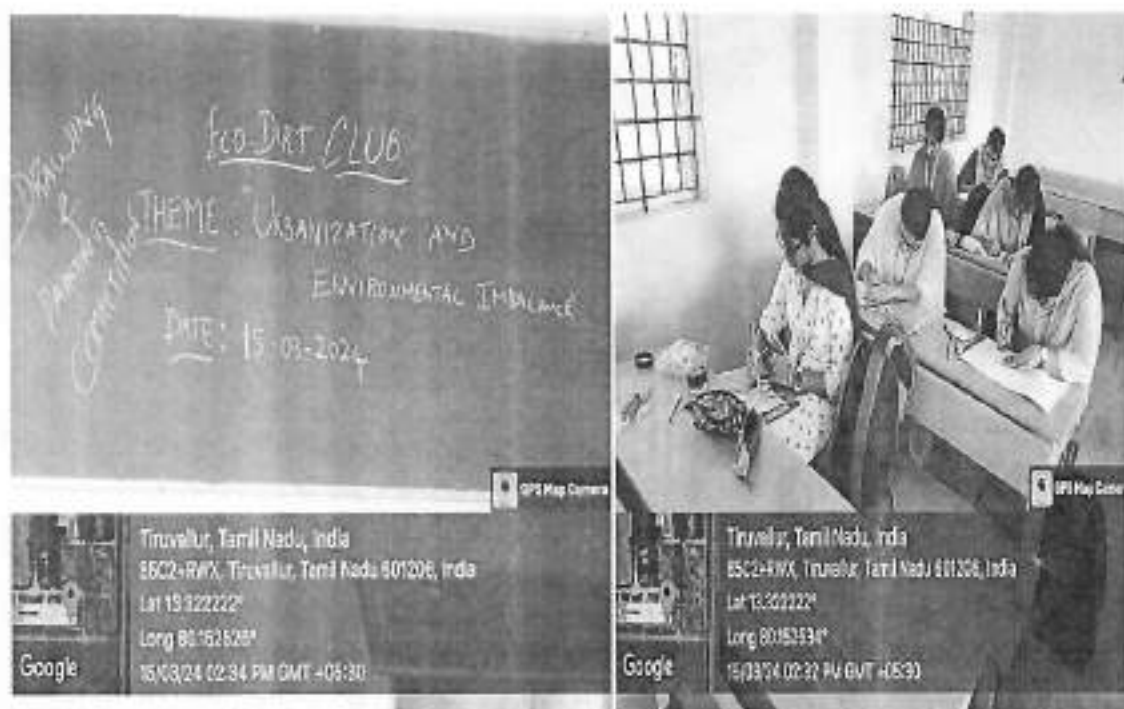 DRAWING
&
PAINTING
COMPETITION
ECO DIRT CLUB
THEME: URBANIZATION AND
ENVIRONMENTAL IMBALANCE
DATE: 15-03-2024
GPS Map Camera
Tiruvallur, Tamil Nadu, India
85C2+RWX, Tiruvallur, Tamil Nadu 601206, India
Lat 13.322222°
Long 80.152526°
15/03/24 02:34 PM GMT +05:30
Google
GPS Map Camera
Tiruvallur, Tamil Nadu, India
85C2+RWX, Tiruvallur, Tamil Nadu 601206, India
Lat 13.322222°
Long 80.152534°
15/03/24 02:32 PM GMT +05:30
Google